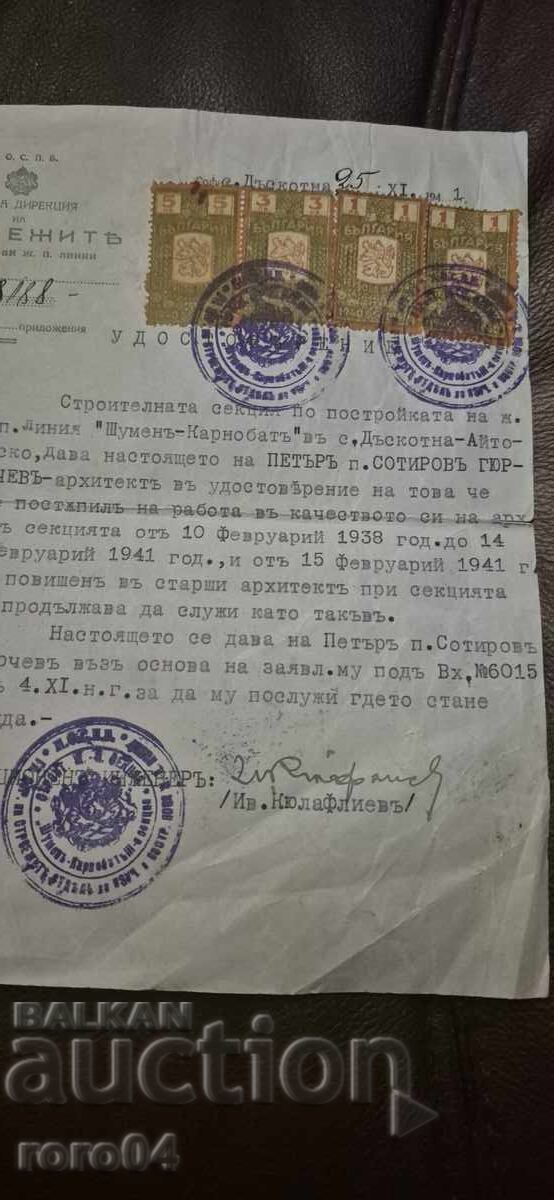 О. С. П. Б.
А ДИРЕКЦИЯ
НА
ЕЖИТѢ
ЖИ Ж. П. ЛИНИИ
8188 -
приложения
с. Дъскотна 25 . XI. 1
5 5 3 3 1 1 1 1
БЪЛГАРИЯ БЪЛГАРИЯ БЪЛГАРИЯ БЪЛГАРИЯ
У Д О С
Строителната секция по постройката на ж.
п. Линия "Шуменъ-Карнобатъ" въ с. Дъскотна-Айто-
ско, дава настоящето на ПЕТЪРЪ п. СОТИРОВЪ ГЮР-
ЧЕВЪ-архитектъ въ удостовѣрение на това че
постѫпилъ на работа въ качеството си на арх
ъ секцията отъ 10 февруарий 1938 год. до 14
евруарий 1941 год., и отъ 15 февруарий 1941 г.
повишенъ въ старши архитектъ при секцията
продължава да служи като такъвъ.
Настоящето се дава на Петъръ п. Сотировъ
рчевъ възъ основа на заявл. му подъ Вх. №6015
ъ 4. XI. н. г. за да му послужи гдето стане
да.-
/Ив. Кюлафлиевъ/
"Шуменъ-Карнобатъ"
BALKAN
auction
roro04